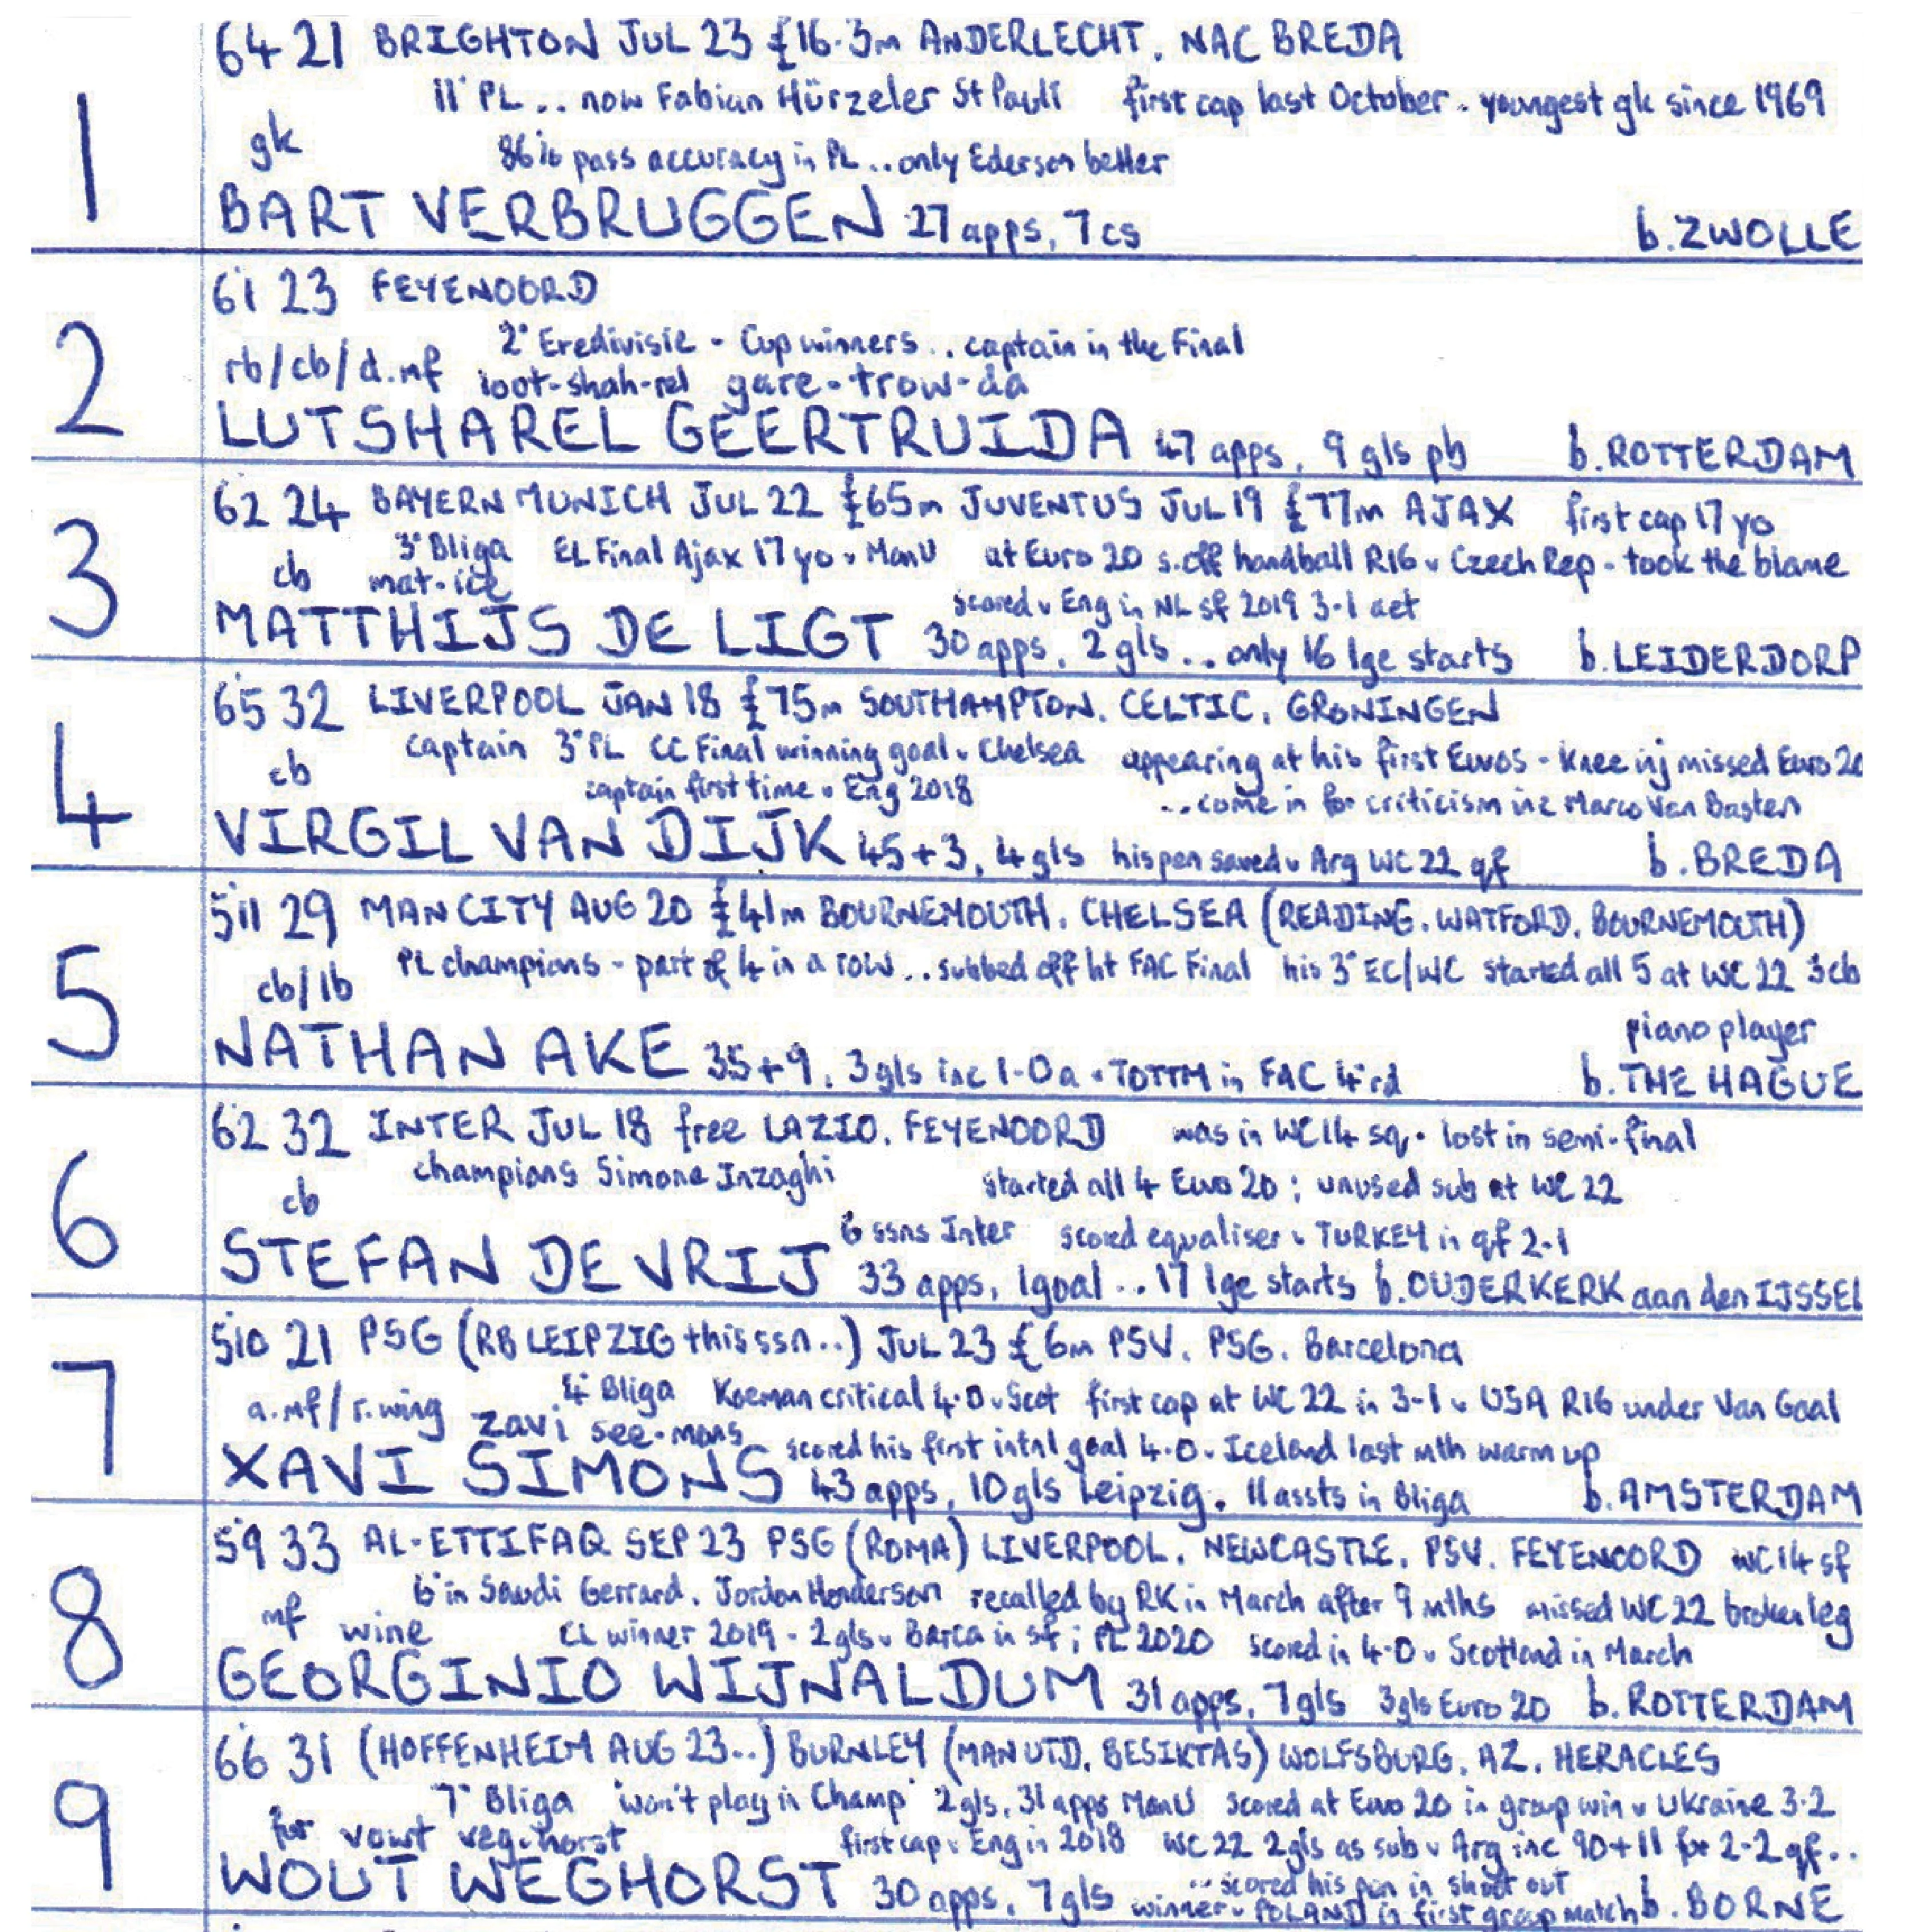 1
64 21 BRIGHTON JUL 23 £16.3m ANDERLECHT. NAC BREDA
11° PL .. now Fabian Hürzeler St Pauli first cap last October. youngest gk since 1969
gk 86% pass accuracy in PL .. only Ederson better
BART VERBRUGGEN 27 apps, 7 cs b. ZWOLLE
2
61 23 FEYENOORD
2° Eredivisie - Cup winners .. captain in the Final
rb/cb/d.mf loot-shah-rel gare-trow-da
LUTSHAREL GEERTRUIDA 47 apps, 9 gls pb b. ROTTERDAM
3
62 24 BAYERN MUNICH JUL 22 £65m JUVENTUS JUL 19 £77m AJAX first cap 17 yo
3° Bliga EL Final Ajax 17 yo v Man U at Euro 20 s.off handball R16 v Czech Rep - took the blame
cb mat-ice
scored v Eng in NL sf 2019 3-1 aet
MATTHIJS DE LIGT 30 apps, 2 gls .. only 16 lge starts b. LEIDERDORP
4
65 32 LIVERPOOL JAN 18 £75m SOUTHAMPTON. CELTIC. GRONINGEN
captain 3° PL CC Final winning goal v Chelsea appearing at his first Euros - knee inj missed Euro 20
cb captain first time v Eng 2018 ..come in for criticism inc Marco Van Basten
VIRGIL VAN DIJK 45+3, 4 gls his pen saved v Arg WC 22 qf b. BREDA
5
511 29 MAN CITY AUG 20 £41m BOURNEMOUTH. CHELSEA (READING. WATFORD. BOURNEMOUTH)
PL champions - part of 4 in a row .. subbed off ht FAC Final his 3° EC/WC started all 5 at WC 22 3cb
cb/lb
piano player
NATHAN AKE 35+9, 3 gls inc 1-0 a v TOTTM in FAC 4 rd b. THE HAGUE
6
62 32 INTER JUL 18 free LAZIO. FEYENOORD was in WC 14 sq. lost in semi-final
champions Simone Inzaghi started all 4 Euro 20; unused sub at WC 22
cb
6 ssns Inter scored equaliser v TURKEY in qf 2-1
STEFAN DE VRIJ 33 apps, 1 goal .. 17 lge starts b. OUDERKERK aan den IJSSEL
7
510 21 PSG (RB LEIPZIG this ssn..) JUL 23 £6m PSV. PSG. Barcelona
4° Bliga Koeman critical 4-0 v Scot first cap at WC 22 in 3-1 v USA R16 under Van Gaal
a.mf/r.wing zavi see-mons
scored his first intnl goal 4-0 v Iceland last mth warm up
XAVI SIMONS 43 apps, 10 gls Leipzig. 11 assts in Bliga b. AMSTERDAM
8
59 33 AL-ETTIFAQ SEP 23 PSG (ROMA) LIVERPOOL. NEWCASTLE. PSV. FEYENOORD WC 14 sf
6° in Saudi Gerrard. Jordan Henderson recalled by RK in March after 9 mths missed WC 22 broken leg
mf wine CL winner 2019 - 2 gls v Barca in sf; PL 2020 scored in 4-0 v Scotland in March
GEORGINIO WIJNALDUM 31 apps, 7 gls 3 gls Euro 20 b. ROTTERDAM
9
66 31 (HOFFENHEIM AUG 23..) BURNLEY (MAN UTD. BESIKTAS) WOLFSBURG. AZ. HERACLES
7° Bliga 'won't play in Champ' 2 gls, 31 apps Man U scored at Euro 20 in group win v Ukraine 3-2
for vowt veg-horst first cap v Eng in 2018 WC 22 2 gls as sub v Arg inc 90+11 for 2-2 qf..
..scored his pen in shoot out
WOUT WEGHORST 30 apps, 7 gls winner v POLAND in first group match b. BORNE